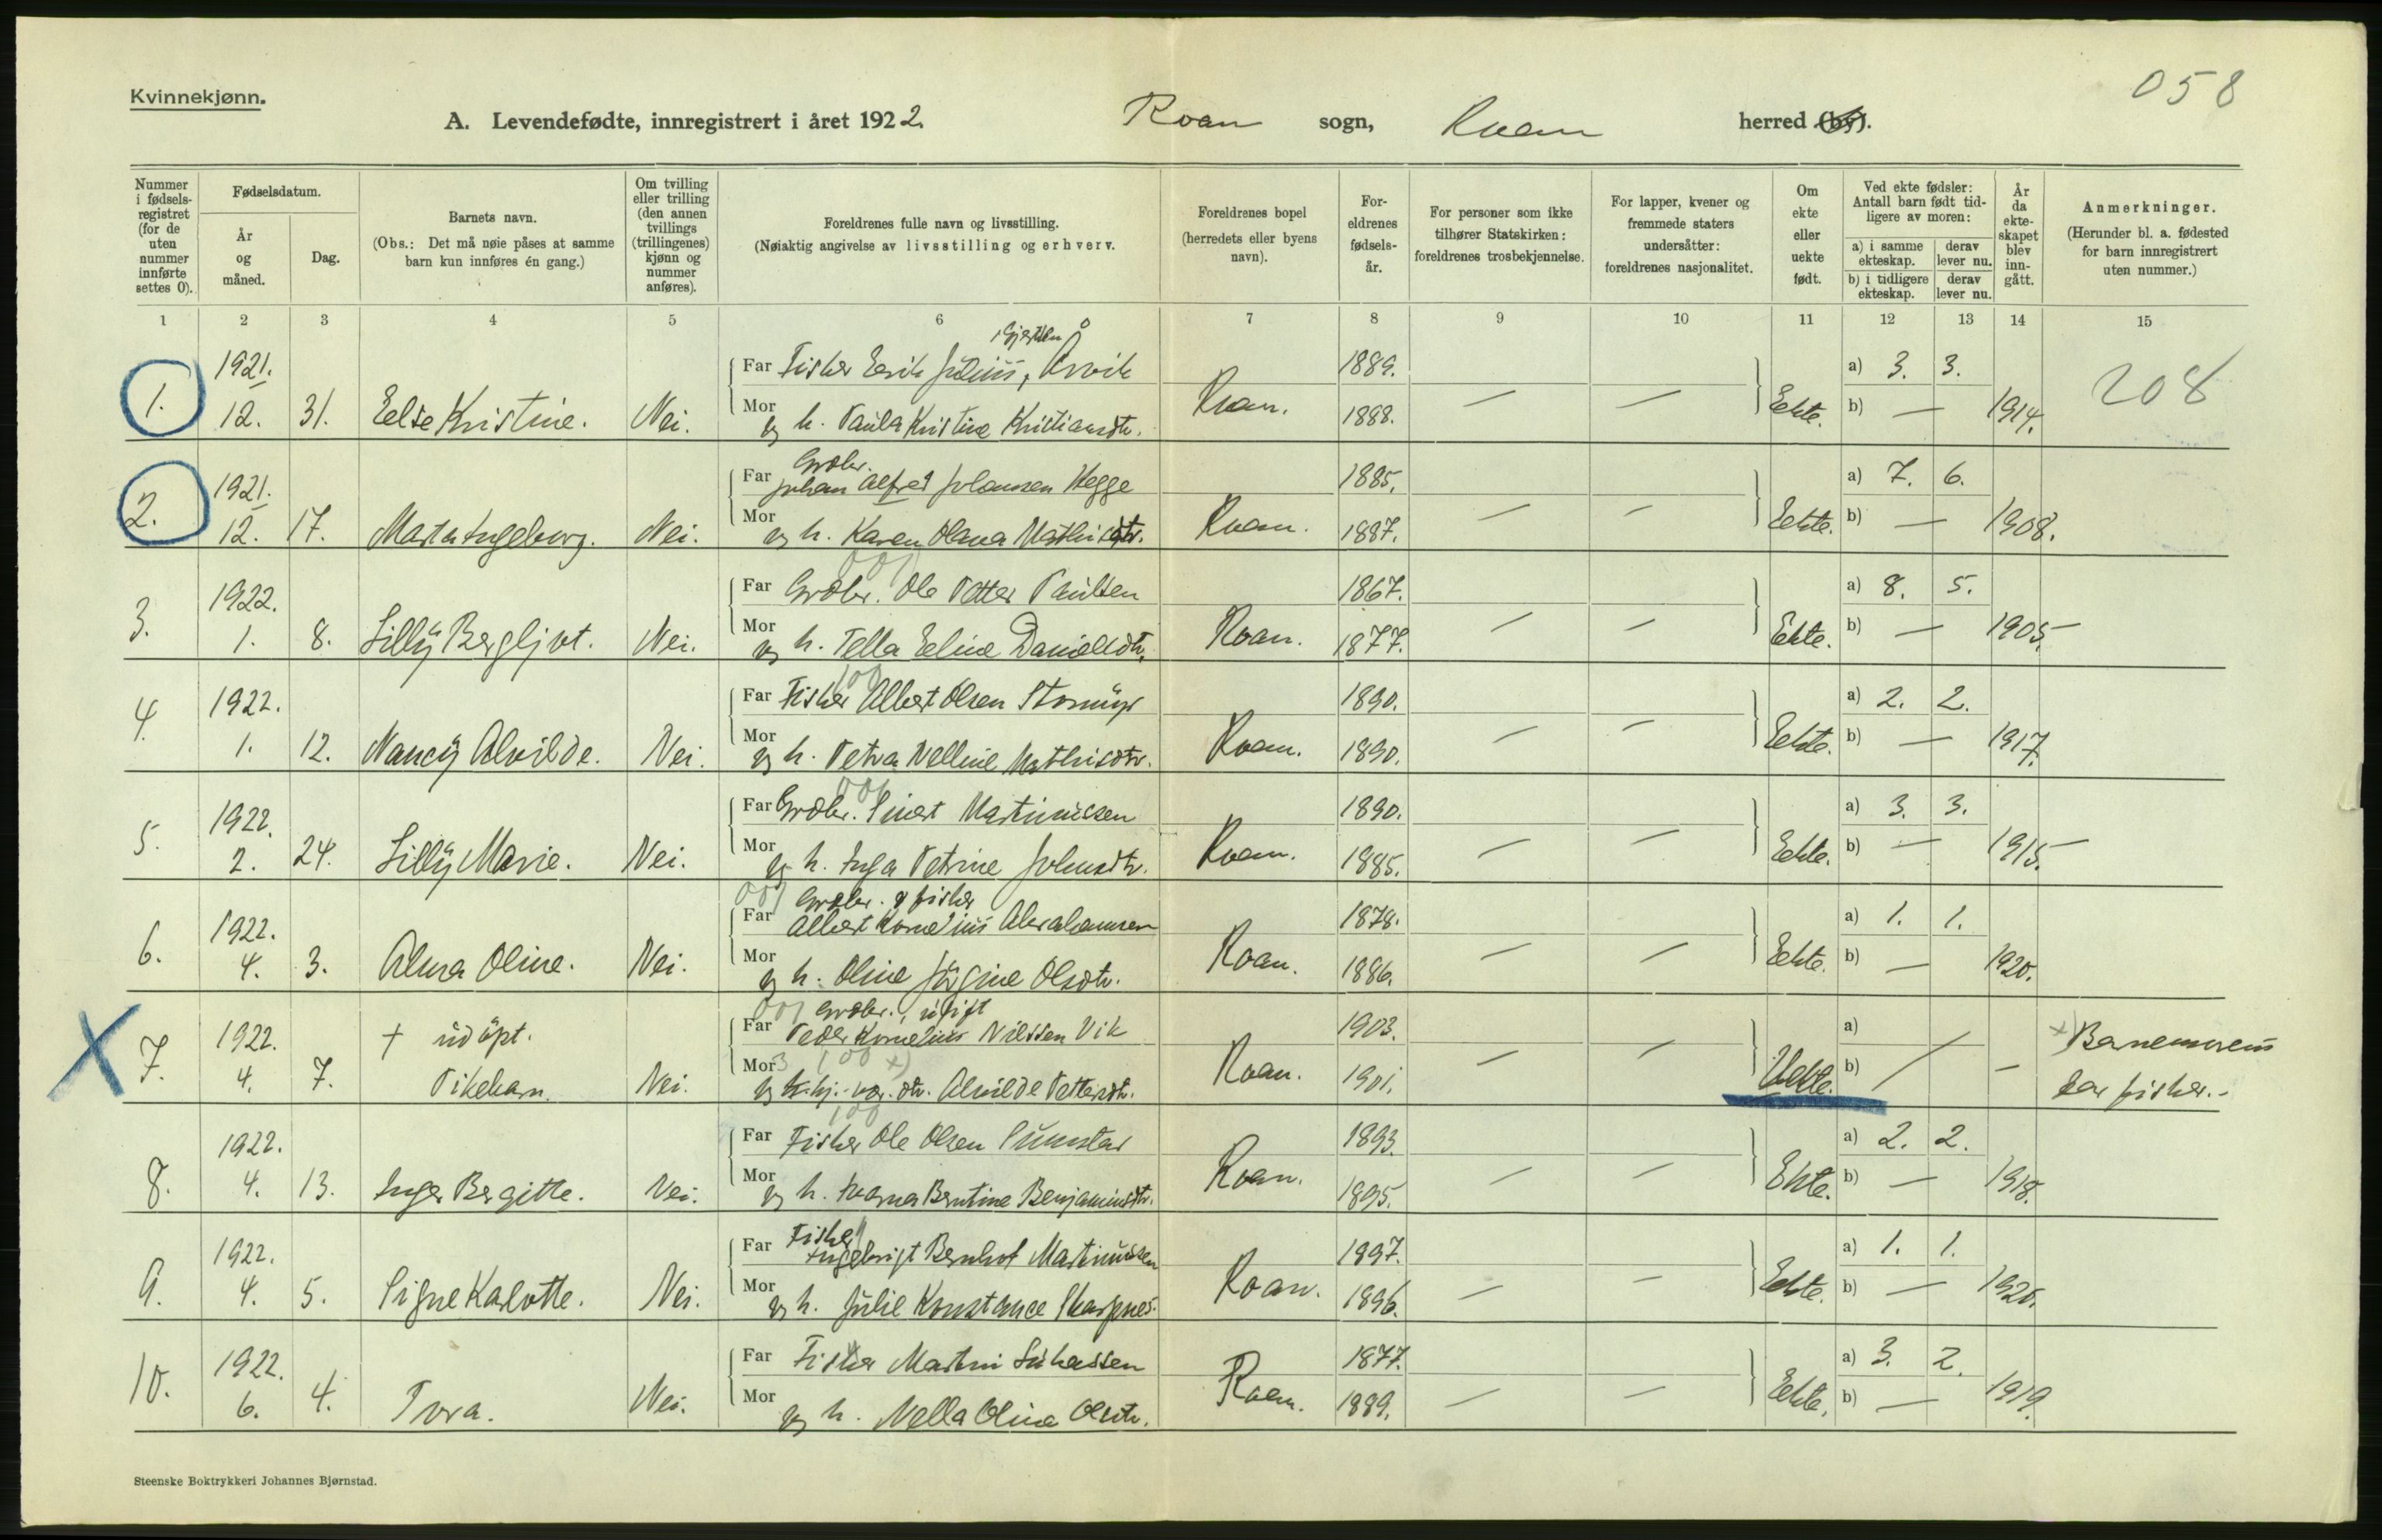 Kvinnekjønn.
058
A. Levendefødte, innregistrert i året 1922. Roan sogn, Roan herred (by).
Nummer i fødselsregistret (for de uten nummer innførte settes 0).
Fødselsdatum.
År og måned.
Dag.
Barnets navn.
(Obs.: Det må nøie påses at samme barn kun innføres én gang.)
Om tvilling eller trilling (den annen tvillings (trillingenes) kjønn og nummer anføres).
Foreldrenes fulle navn og livsstilling.
(Nøiaktig angivelse av livsstilling og erhverv.
Foreldrenes bopel (herredets eller byens navn).
Foreldrenes fødselsår.
For personer som ikke tilhører Statskirken: foreldrenes trosbekjennelse.
For lapper, kvener og fremmede staters undersåtter: foreldrenes nasjonalitet.
Om ekte eller uekte født.
Ved ekte fødsler: Antall barn født tidligere av moren:
a) i samme ekteskap. derav lever nu.
b) i tidligere ekteskap. derav lever nu.
År da ekteskapet blev inngått.
Anmerkninger.
(Herunder bl. a. fødested for barn innregistrert uten nummer.)
1 2 3 4 5 6 7 8 9 10 11 12 13 14 15
1921. Far Fisker Erik Julius, 1889. a) 3. 3. 208
1. 12. 31. Else Kristine. Nei. Mor og h. Paula Kristine Kristiansdtr. Roan. 1888. — — Ekte. b) — 1914.
Grdbr.
1921. Far Johan Alfred Johansen Hegge 1885. a) 7. 6.
2. 12. 17. Marta Ingeborg. Nei. Mor og h. Karen Olava Mathisdtr. Roan. 1887. — — Ekte. b) — 1908.
001
1922. Far Grdbr. Ole Petter Paulsen 1867. a) 8. 5.
3. 1. 8. Lilly Bergljot. Nei. Mor og h. Pella Eline Danielsdtr. Roan. 1877. — — Ekte. b) — 1905.
100
1922. Far Fisker Albert Olsen Stormyr 1890. a) 2. 2.
4. 1. 12. Nancy Alvilde. Nei. Mor og h. Petra Nelline Mathisdtr. Roan. 1890. — — Ekte. b) — 1917.
001
1922. Far Grdbr. Sivert Martinussen 1890. a) 3. 3.
5. 2. 24. Lilly Marie. Nei. Mor og h. Inga Petrine Johnsdtr. Roan. 1885. — — Ekte. b) — 1915.
001 Grdbr. & fisker
1922. Far Albert Kornelius Abrahamsen 1878. a) 1. 1.
6. 4. 3. Alma Oline. Nei. Mor og h. Oline Jørgine Olsdtr. Roan. 1886. — — Ekte. b) — 1920.
001 Grdbr., ugift
1922. † udøpt. Far Peder Kornelius Nilssen Vik 1903. a) x) Barnemorens
7. 4. 7. Pikebarn. Nei. Mor 3 100 x) Alvilde Pettersdtr. Roan. 1901. — — Uekte. b) — far fisker.
100
1922. Far Fisker Ole Olsen Sumstad 1893. a) 2. 2.
8. 4. 13. Inger Bergitte. Nei. Mor og h. Bentine Benjaminsdtr. Roan. 1895. — — Ekte. b) — 1918.
Fisker
1922. Far Ingebrigt Bernhof Martinussen 1897. a) 1. 1.
9. 4. 5. Signe Karlotte. Nei. Mor og h. Julie Konstance Skarpnes. Roan. 1896. — — Ekte. b) — 1920.
1922. Far Fisker Martin Lukassen 1877. a) 3. 2.
10. 6. 4. Tora. Nei. Mor og h. Nella Oline Olsdtr. Roan. 1889. — — Ekte. b) — 1919.
Steenske Boktrykkeri Johannes Bjørnstad.